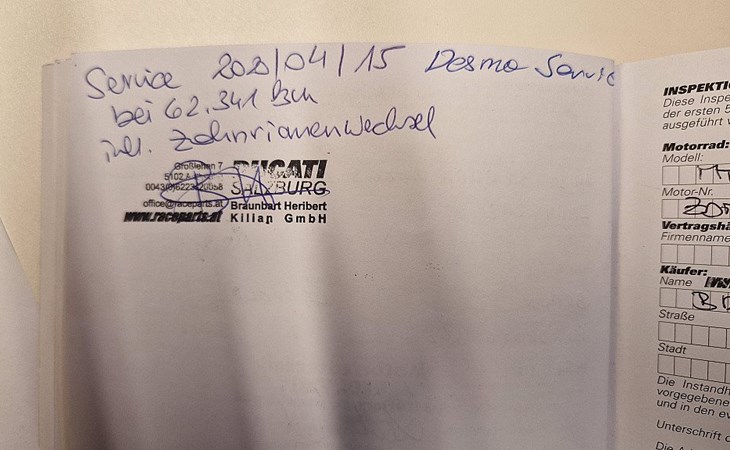 Service 2020/04/15 Desmo Servic
bei 62.341 km
inkl. Zahnriemenwechsel
Großlehen 7
5102 A
DUCATI
0043(0)6223 20058
SALZBURG
office@raceparts.at Braunbart Heribert
www.raceparts.at Kilian GmbH
INSPEKTI
Diese Inspe
der ersten 5
ausgeführt v
Motorrad:
Modell:
Motor-Nr.
ZD
Vertragshä
Firmenname
Käufer:
Name
Straße
Stadt
Die Instandh
vorgegebene
und in den ev
Unterschrift d